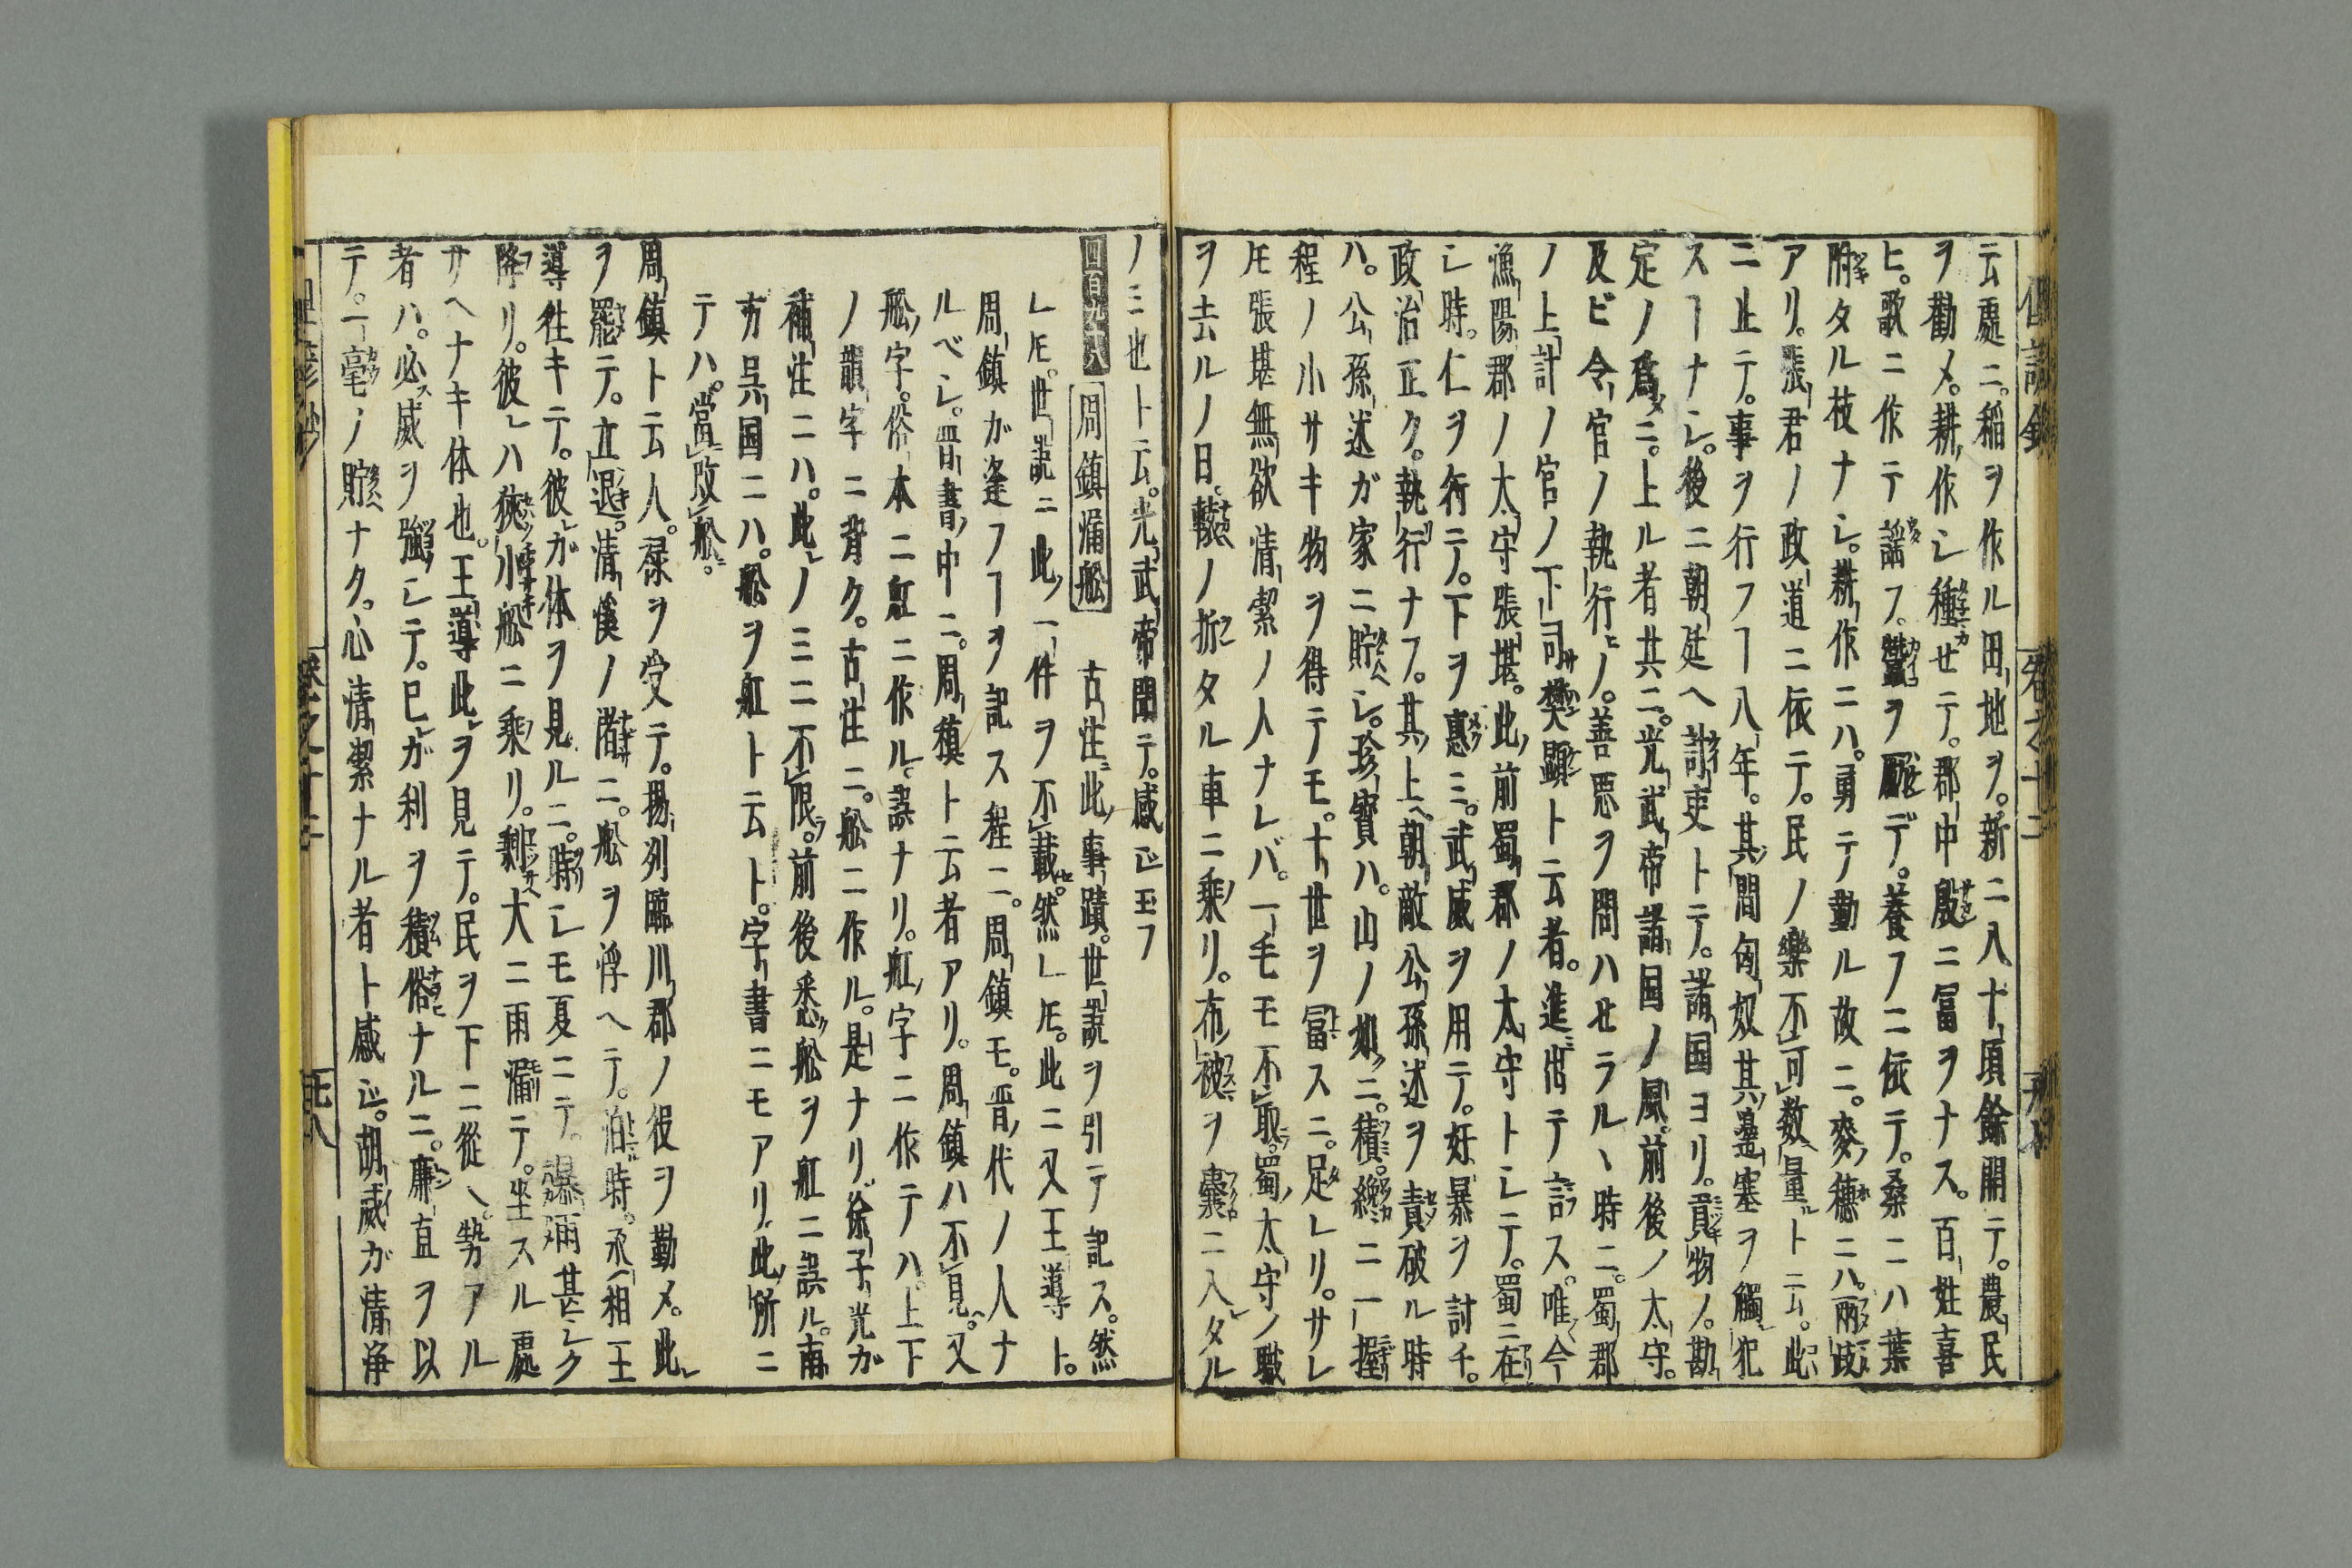 云處ニ。稲ヲ作ル田地ヲ。新ニ八十頃餘開テ。農民
ヲ勸メ。耕作シ種セテ。郡中殷ニ冨ヲナス。百姓喜
ヒ。歌ニ作テ謡フ。蠶ヲ デ。養フニ依テ。桑ニハ葉
附タル枝ナシ。耕作ニハ。勇テ動ル故ニ。麥穗ニハ。兩岐
アリ。張君ノ政道ニ依テ。民ノ樂不可数量ト云。此
ニ止テ。事ヲ行フヿ八年。其間匈奴其邊塞ヲ觸犯
スヿナシ。後ニ朝廷ヘ計吏トテ。諸国ヨリ。貢物ノ。勘
定ノ爲ニ。上ル者共ニ。光武帝諸国ノ風。前後ノ太守。
及ビ令官ノ執行ノ。善悪ヲ問ハセラルヽ時ニ。蜀郡
ノ上計ノ官ノ下司樊顯ト云者。進出テ言ス。唯今
漁陽郡ノ太守張堪。此前蜀郡ノ太守トシテ。蜀ニ在
シ時。仁ヲ行ニノ。下ヲ惠ミ。武威ヲ用テ。奸暴ヲ討チ。
政治正ク。執行ナフ。其上朝敵公孫述ヲ責破ル時
ハ。公孫述ガ家ニ貯ヘシ。珍寳ハ。山ノ如ニ。積。纔ニ一握
程ノ小サキ物ヲ得テモ。十世ヲ冨スニ。足レリ。サレ
𪜈張堪無欲清潔ノ人ナレバ。一毛モ不取。蜀太守ノ職
ヲ去ルノ日。轅ノ折タル車ニ乘リ。布被ヲ嚢ニ入タル
ノミ也ト云。光武帝聞テ。感ジ玉フ
四百九十八 周鎮漏舩 古注此事蹟。世説ヲ引テ記ス。然
レ𪜈。世説ニ此一件ヲ不載。然レ𪜈。此ニ又王導ト。
周鎮ガ逢フヿヲ記ス程ニ。周鎮モ。晋代ノ人ナ
ルベシ。晋書中ニ。周稹ト云者アリ。周鎮ハ不見。又
舩字。俗本ニ舡ニ作ル。誤ナリ。舡字ニ作テハ。上下
ノ韻字ニ背ク。古注ニ。舩ニ作ル。是ナリ。徐子光ガ
補注ニハ。此ノミニ不限。前後悉舩ヲ舡ニ誤ル。南
方呉国ニハ。舩ヲ舡ト云ト。字書ニモアリ。此所ニ
テハ。當改舩。
周鎮ト云人。禄ヲ受テ。揚列臨川郡ノ役ヲ勤メ。此
ヲ罷テ。立退。清溪ノ渚ニ。舩ヲ浮ヘテ。泊時。丞相王
導往キテ。彼ガ体ヲ見ルニ。時シモ夏ニテ。瀑雨甚シク
降リ。彼レハ狹小舩ニ乘リ。剰大ニ雨漏テ。坐スル處
サヘナキ体也。王導此ヲ見テ。民ヲ下ニ從ヘ。勢アル
者ハ。必威ヲ強シテ。已ガ利ヲ積俗ナルニ。廉直ヲ以
テ。一毫ノ貯ナク。心清潔ナル者ト感ジ。胡威ガ清浄